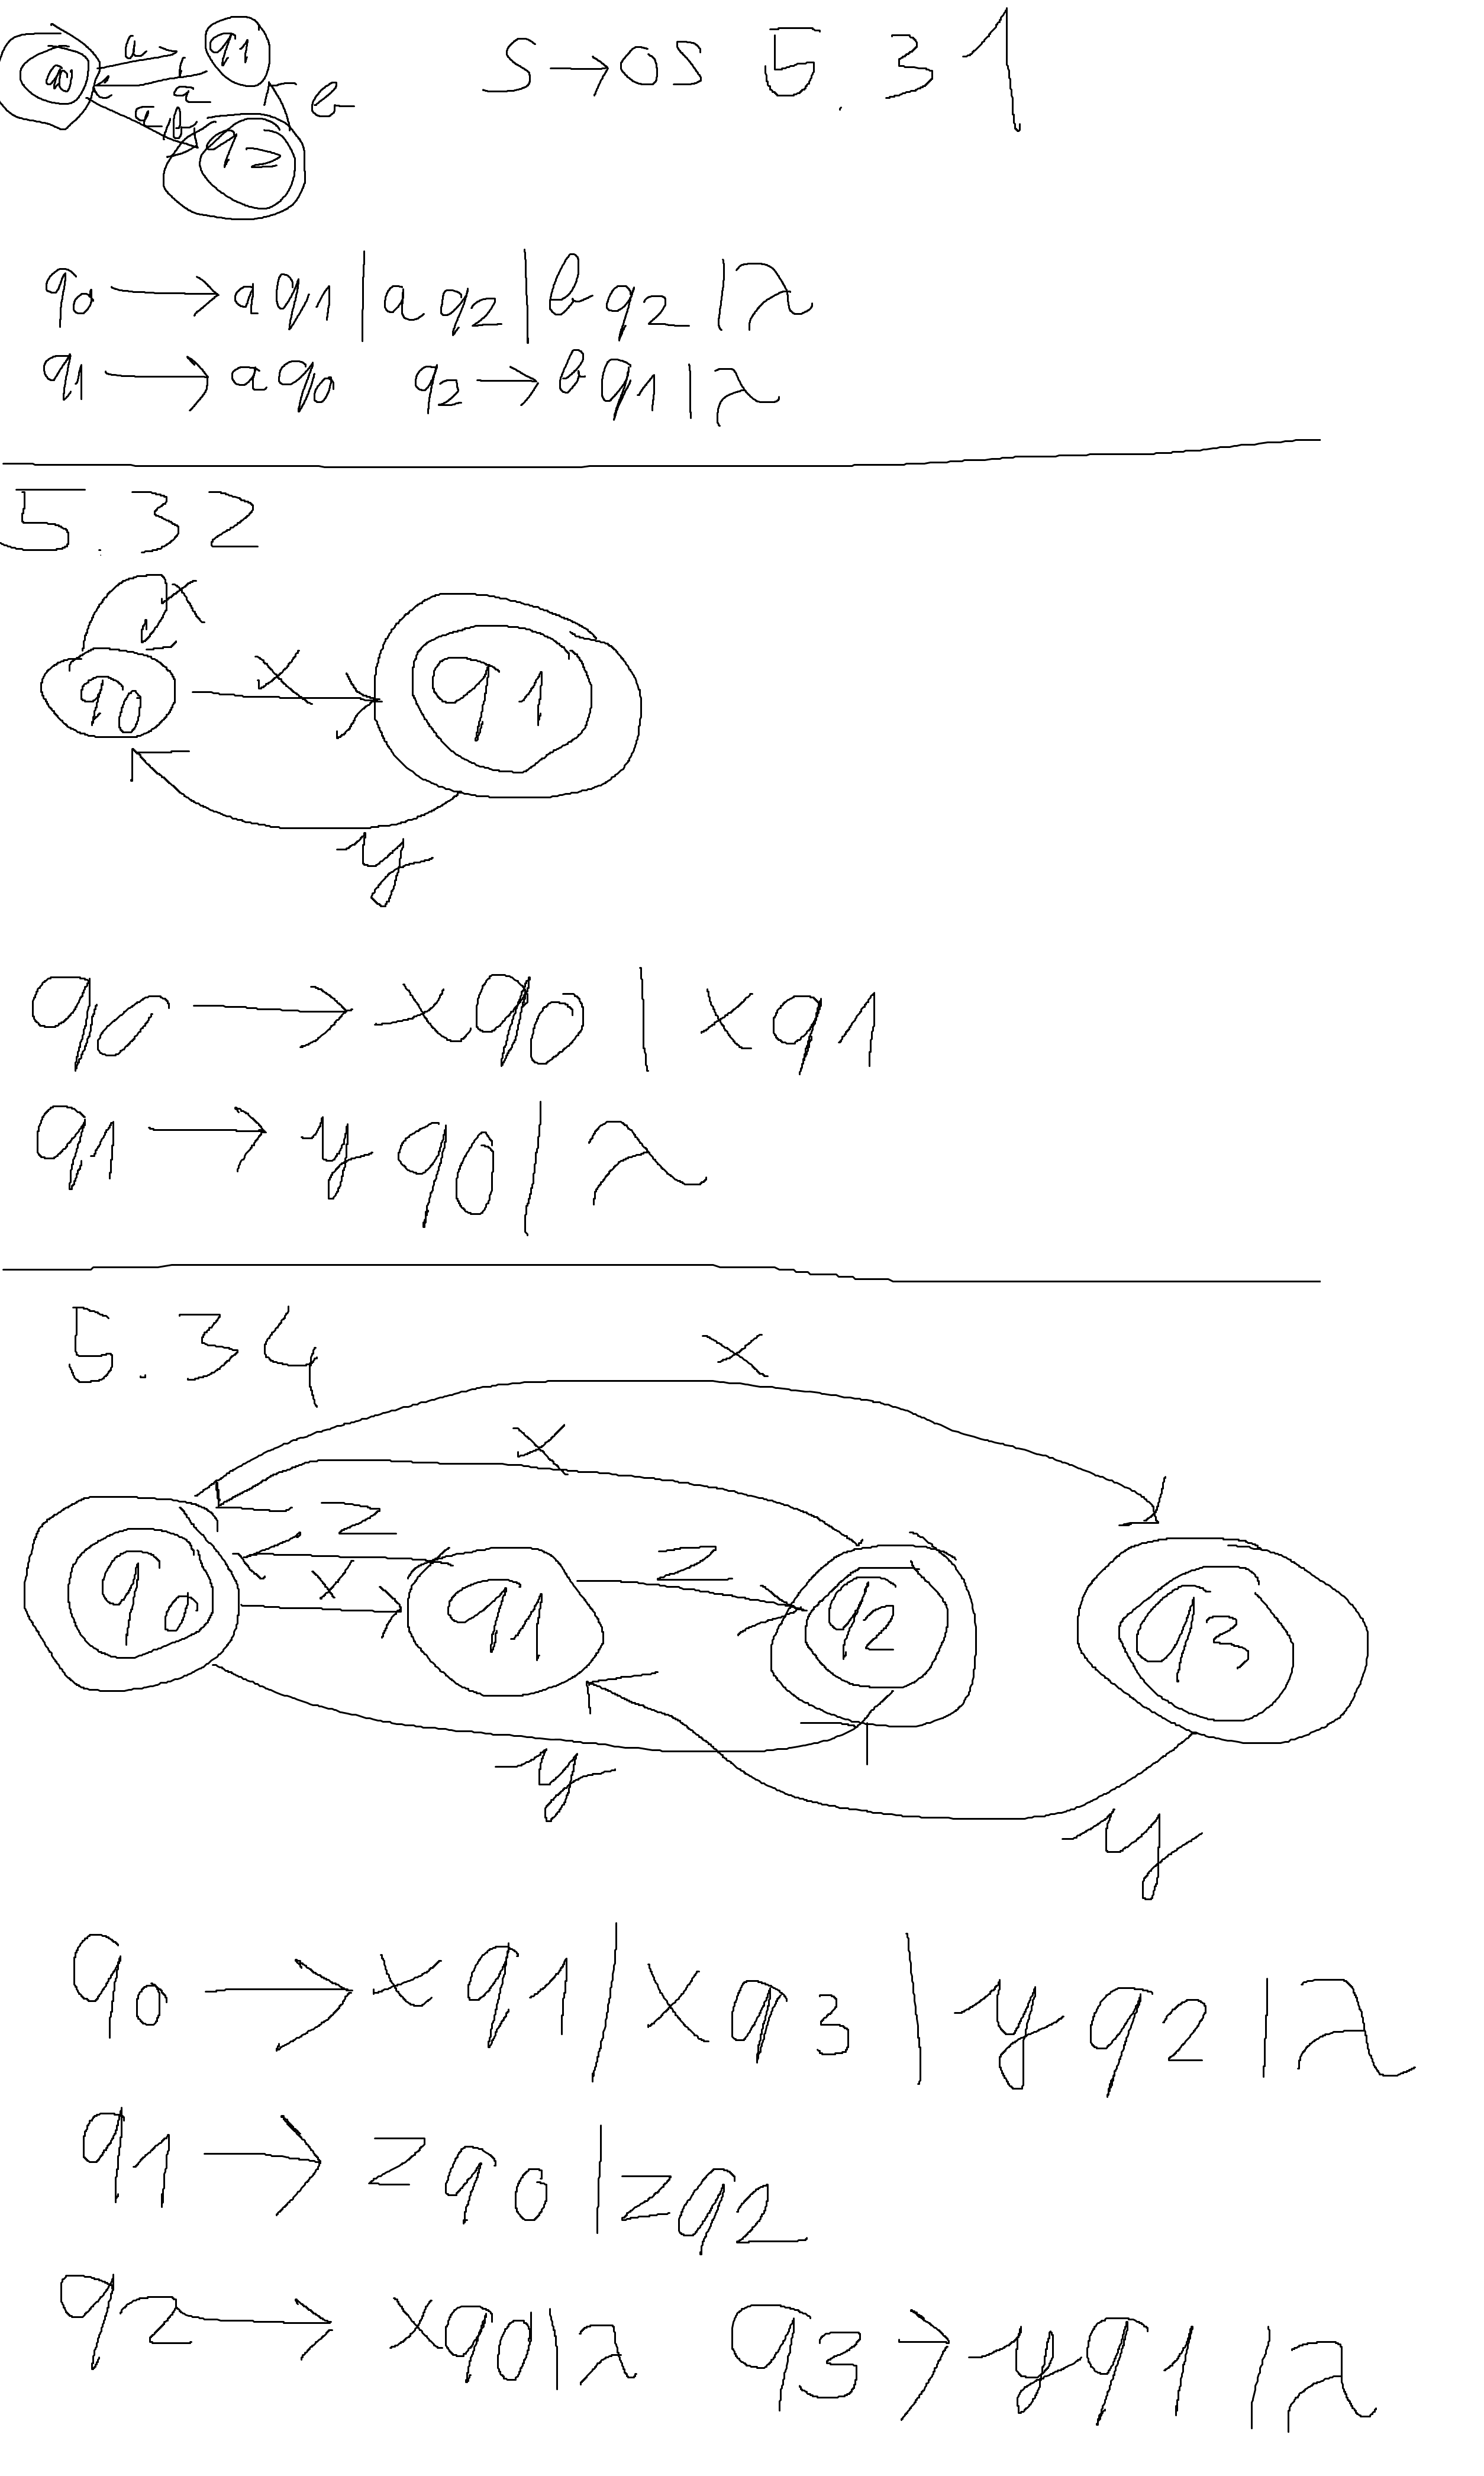 S → 0S 5.31
q0 a q1
a
a,b b
q2
q0 → aq1|aq2|bq2|λ
q1 → aq0 q2 → bq1|λ
5.32
x
q0 x q1
y
q0 → xq0|xq1
q1 → yq0|λ
5.34
x
x
z
q0 x q1 z q2 q3
y
y
q0 → xq1|xq3|yq2|λ
q1 → zq0|zq2
q2 → xq0|λ q3 → yq1|λ